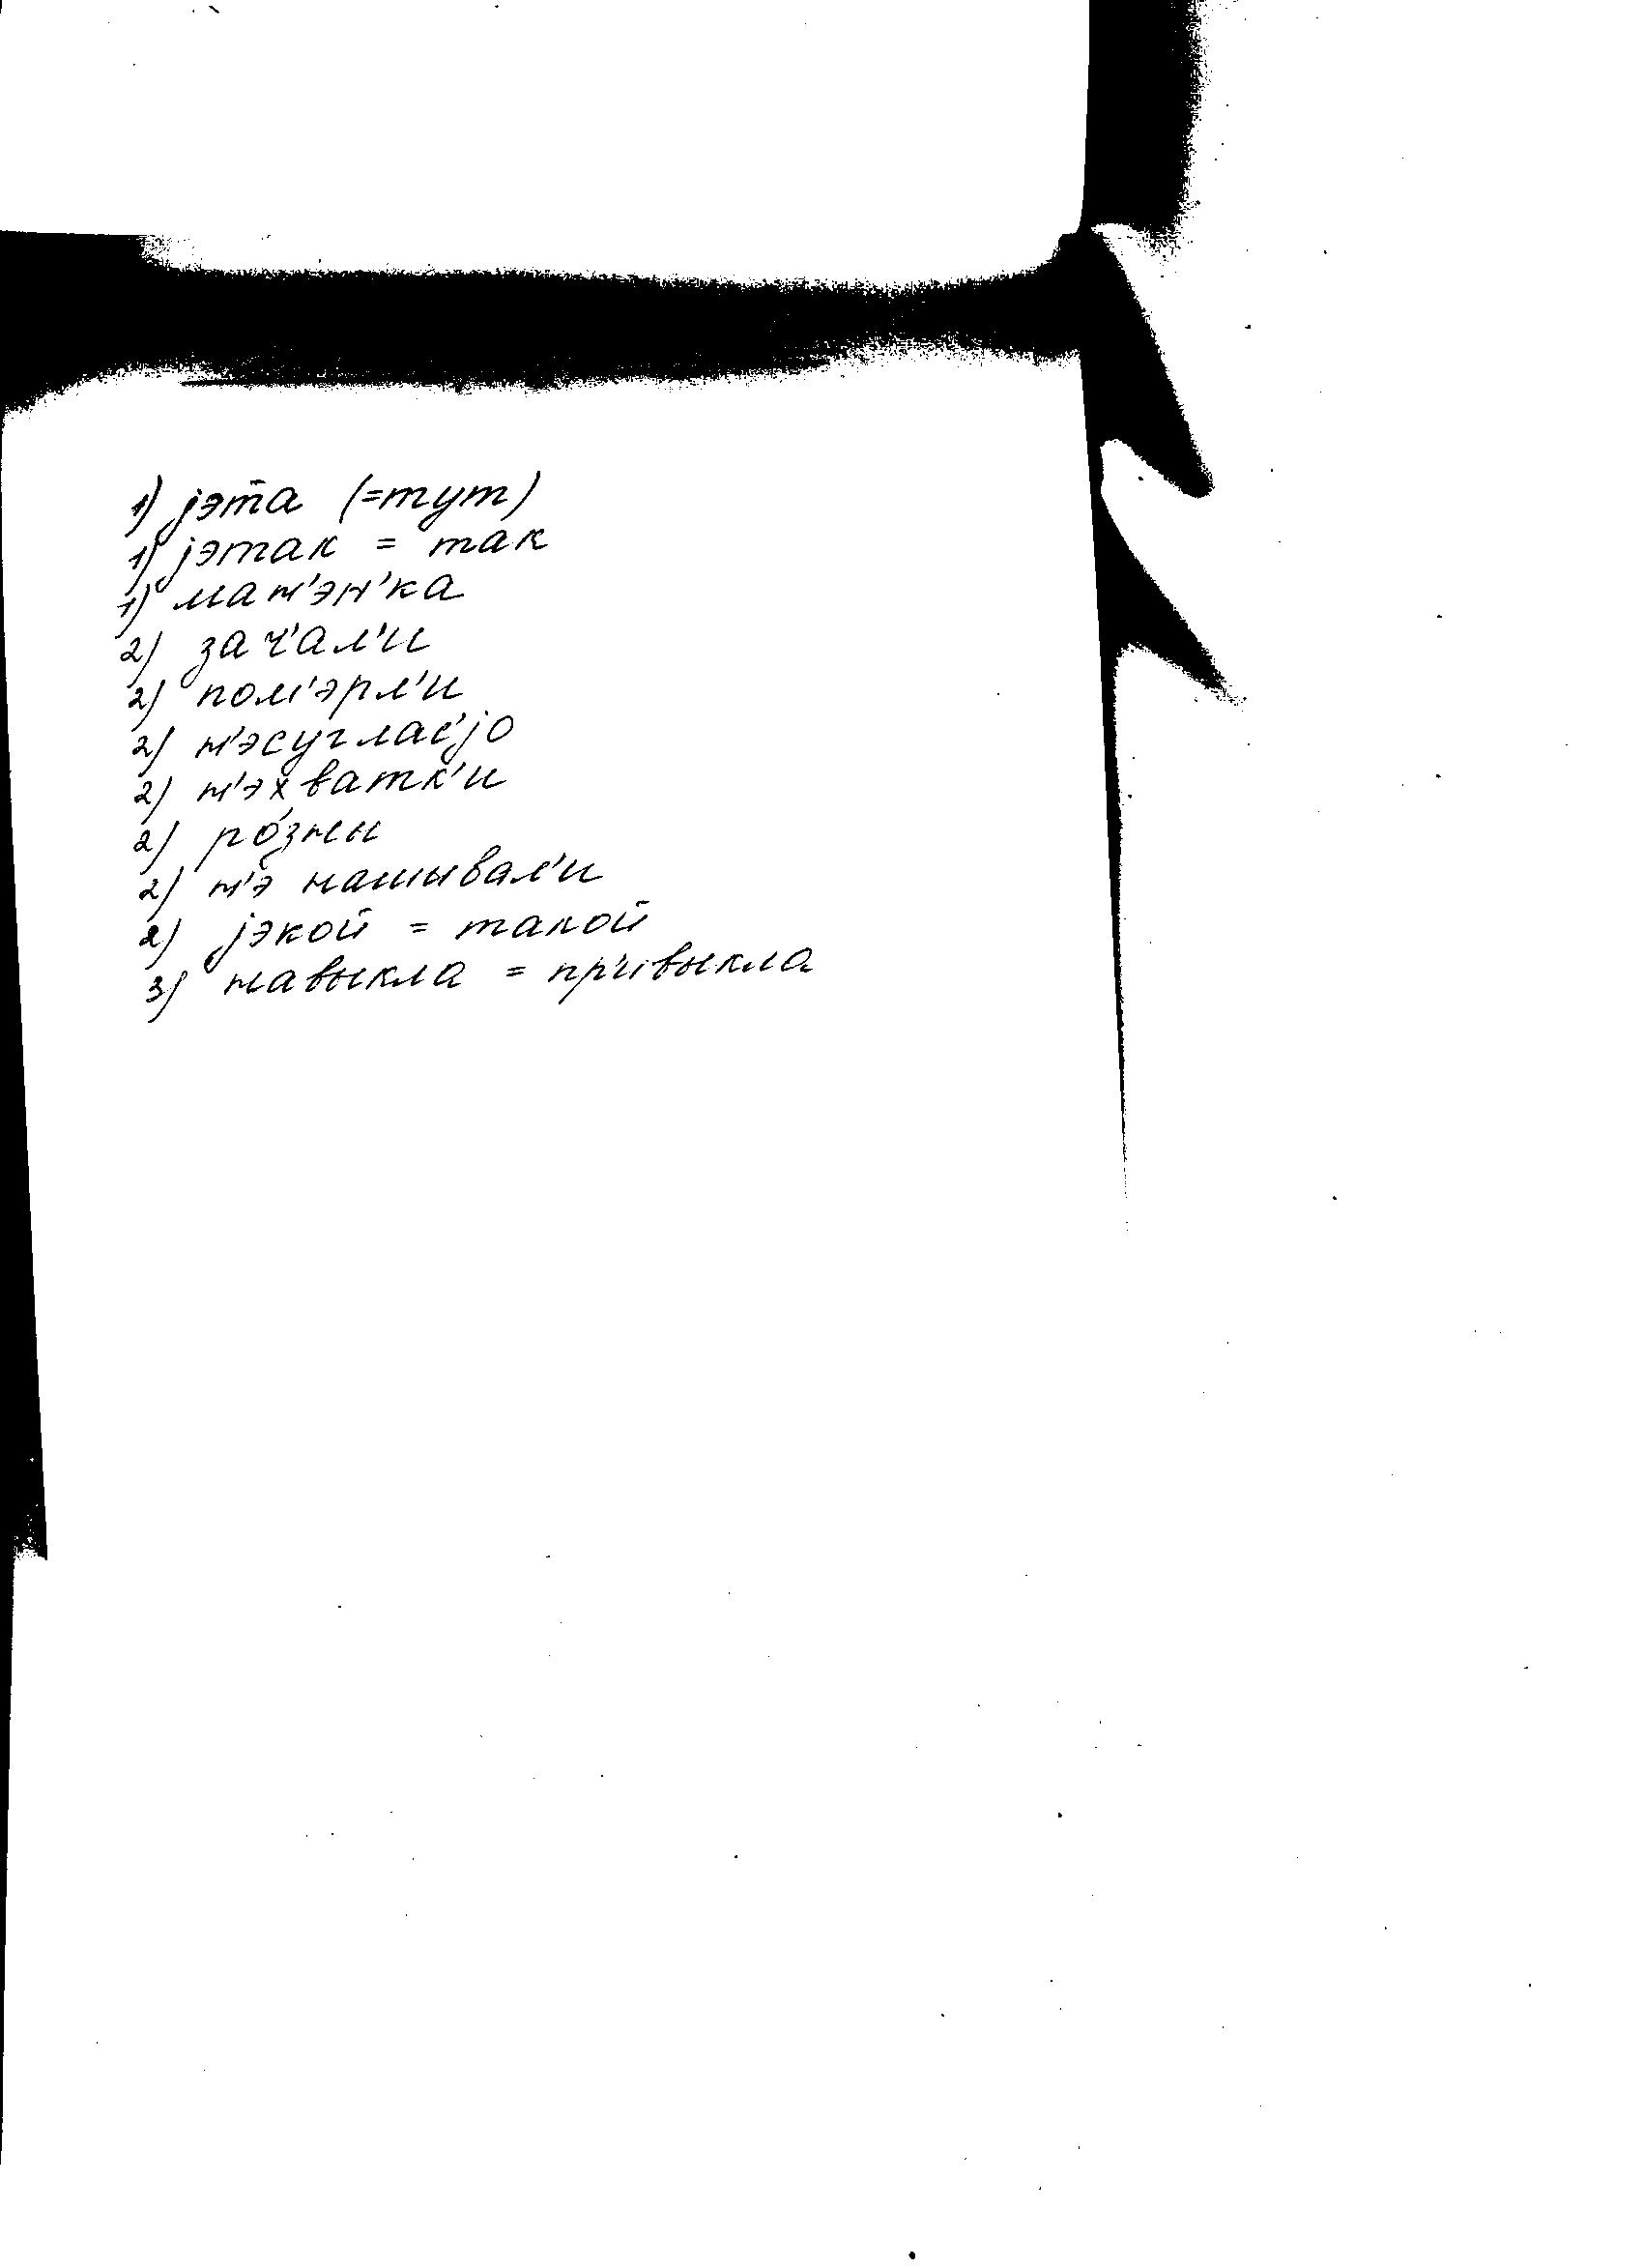 1) jэта (=тут)
1) jэтак = так
1) мат'эн'ка
2) зач'ал'и
2) пом'эрл'и
2) н'эсуглас'jо
2) н'эхватк'и
2) ро́зны
2) н'э нашывал'и
2) jэкой = такой
3) навыкла = пр'ивыкла